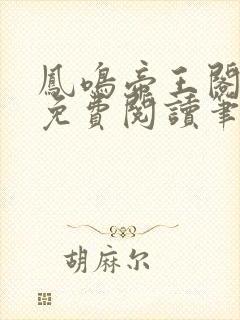 鳳鳴帝王閣
免費閱讀筆
胡麻尔